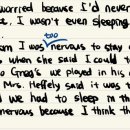 worried because I'd never
, I wasn't even sleeping
too
m I was nervous to stay
s, when she said I could t
o Greg's we played in his
. Mrs. Heffely said it was t
d we had to sleep in th
nervous because I think th